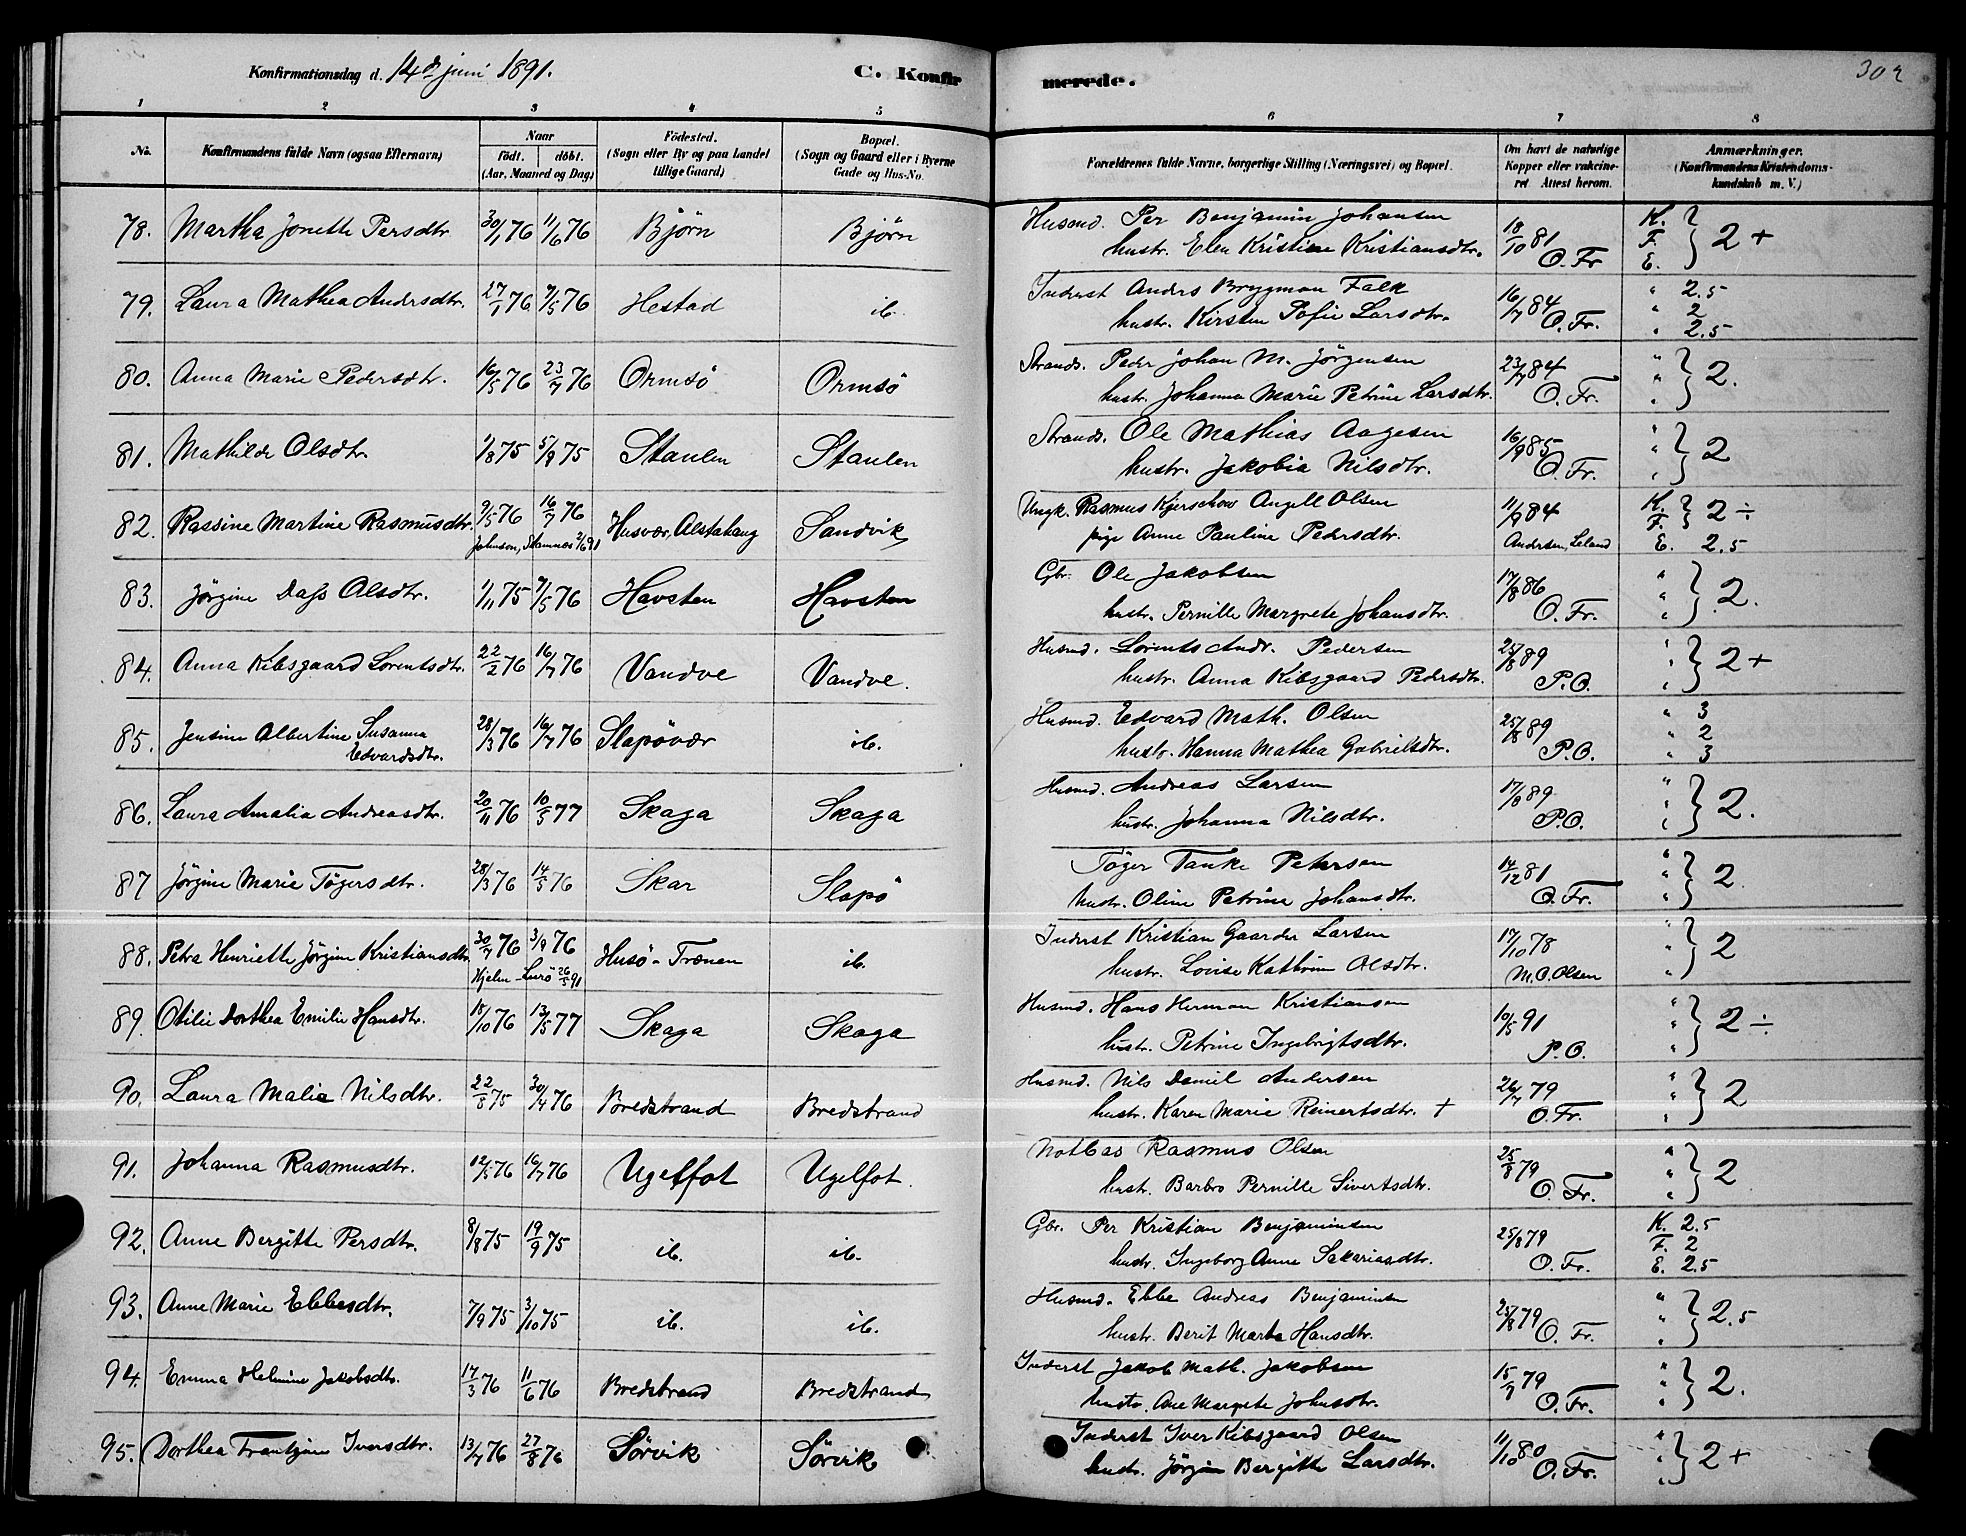 Konfirmationsdag d. 14de juni 1891. C. Konfirmerede. 302
1 2 3 4 5 6 7 8
No. Konfirmandens fulde Navn (ogsaa Efternavn) Naar født. døbt. (Aar, Maaned og Dag) Fødested. (Sogn eller By og paa Landet tillige Gaard) Bopæl. (Sogn og Gaard eller i Byerne Gade og Hus-No. Forældrenes fulde Navne, borgerlige Stilling (Næringsvei) og Bopæl. Om havt de naturlige Kopper eller vakcineret Attest herom. Anmærkninger. (Konfirmandens Kristendomskundskab m. V.)
78. Martha Jonette Persdtr 30/1 76 11/6 76 Bjørn Bjørn Husmd. Per Benjamin Johansen 18/10 81 K. F. E. } 2 +
hustr. Elen Kristine Kristiansdtr. O. Fr
79. Laura Mathea Andersdtr. 27/1 76 7/5 76 Hestad ib. Inderst Anders Bryggman Falk 16/7 84 " 2.5
hustr. Kirsten Sofie Larsdtr. O. Fr. " 2
" 2.5
80. Anna Marie Pedersdtr. 16/5 76 23/7 76 Ormsö Ormsö Strands. Peder Johan M. Jörgensen 23/7 84 " " " } 2.
hustr. Johanna Marie Petrine Larsdtr. O. Fr.
81. Mathilde Olsdtr. 1/8 75 5/9 75 Staulen Staulen Strands. Ole Mathias Aagesen 16/9 85 " " " } 2
hustr. Jakobia Nilsdtr. O. Fr.
82. Rassine Martine Rasmusdtr. 9/5 76 16/7 76 Husvær, Alstahaug Sandvik Ungk. Rasmus Kjerschow Angell Olsen 11/9 84 K. F. } 2 ÷
Johnson, Stamnes 2/6 91 pige Anne Pauline Pedersdtr. Andersen, Leland E. 2.5
83. Jörgine Dass Olsdtr. 1/11 75 7/5 76 Havsten Havsten Gbr. Ole Jakobsen 17/8 86 " " " } 2.
hustr. Pernille Margrete Johansdtr. O. Fr.
84. Anna Kibsgaard Lorentsdtr. 22/2 76 16/7 76 Vandve Vandve. Husmd. Lorents Andr. Pedersen 25/8 89 " " " } 2 +
hustr. Anna Kibsgaard Pedersdtr. P.O.
85. Jensine Albertine Susanna 28/3 76 16/7 76 Slapövær ib. Husmd. Edvard Math. Olsen 25/8 89 " 3
Edvardsdtr. hustr. Hanna Mathea Gabrielsdtr. P.O. " 2
" 3
86. Laura Amalia Andreasdtr. 20/11 76 10/5 77 Skaga Skaga Husmd. Andreas Larsen 17/8 89 " " " } 2.
hustr. Johanna Nilsdtr. P.O.
87 Jörgine Marie Tögersdtr. 28/3 76 14/5 76 Skar Slapö Töger Tanke Petersen 14/12 81 " " " } 2.
hustr. Oline Petrine Johansdtr. O. Fr.
88. Petra Henriette Jörgine Kristiansdtr. 30/7 76 3/9 76 Husö - Trænen ib. Inderst Kristian Gaarder Larsen 17/10 78 " " " } 2
Hjelm - Lurö 26/5 91 hustr. Lovise Kathrine Olsdtr. M.O. Olsen
89. Otilie Dorthea Emilie Hansdtr. 15/10 76 13/5 77 Skaga Skaga Husmd. Hans Herman Kristiansen 10/5 91 " " " } 2 ÷
hustr. Petrine Ingebrigtsdtr. P.O.
90. Laura Malia Nilsdtr. 22/8 75 30/4 76 Bredstrand Bredstrand Husmd. Nils Daniel Andersen 26/7 79 " " " } 2
hustr. Karen Marie Reinertsdtr. + O. Fr.
91. Johanna Rasmusdtr. 12/5 76 16/7 76 Ugelfot Ugelfot. Notbas Rasmus Olsen 25/8 79 " " " } 2
hustr. Barbro Pernille Sivertsdtr. O. Fr.
92. Anne Bergitte Persdtr. 8/8 75 19/9 75 ib. ib. Gbr. Per Kristian Benjaminsen 25/8 79 K. 2.5
hustr. Ingeborg Anne Sakariasdtr. O. Fr. F. 2
E. 2.5
93. Anne Marie Ebbesdtr. 7/9 75 3/10 75 ib. ib. Husmd. Ebbe Andreas Benjaminsen 25/8 79 " " " } 2.5
hustr. Berit Marta Hansdtr. O. Fr.
94. Emma Helmine Jakobsdtr. 17/3 76 11/6 76 Bredstrand Bredstrand Inderst Jakob Math. Jakobsen 15/7 79 " " " } 2.
hustr. Ane Margrete Johnsdtr. O. Fr.
95. Dorthea Frantzine Iversdtr. 13/7 76 27/8 76 Sörvik Sörvik Inderst Iver Kibsgaard Olsen 11/10 80 " " " } 2 +
hustr. Jörgine Bergitte Larsdtr. O. Fr.